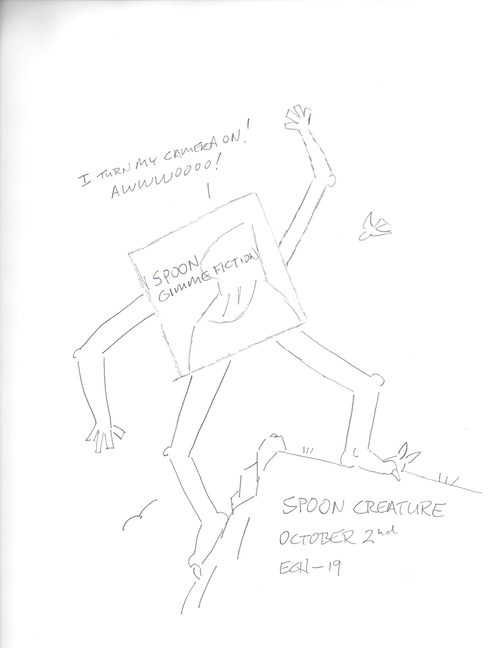 I TURN MY CAMERA ON!
AWWWOOOO!
SPOON
GIMME FICTION
SPOON CREATURE
OCTOBER 2nd
EGH-19